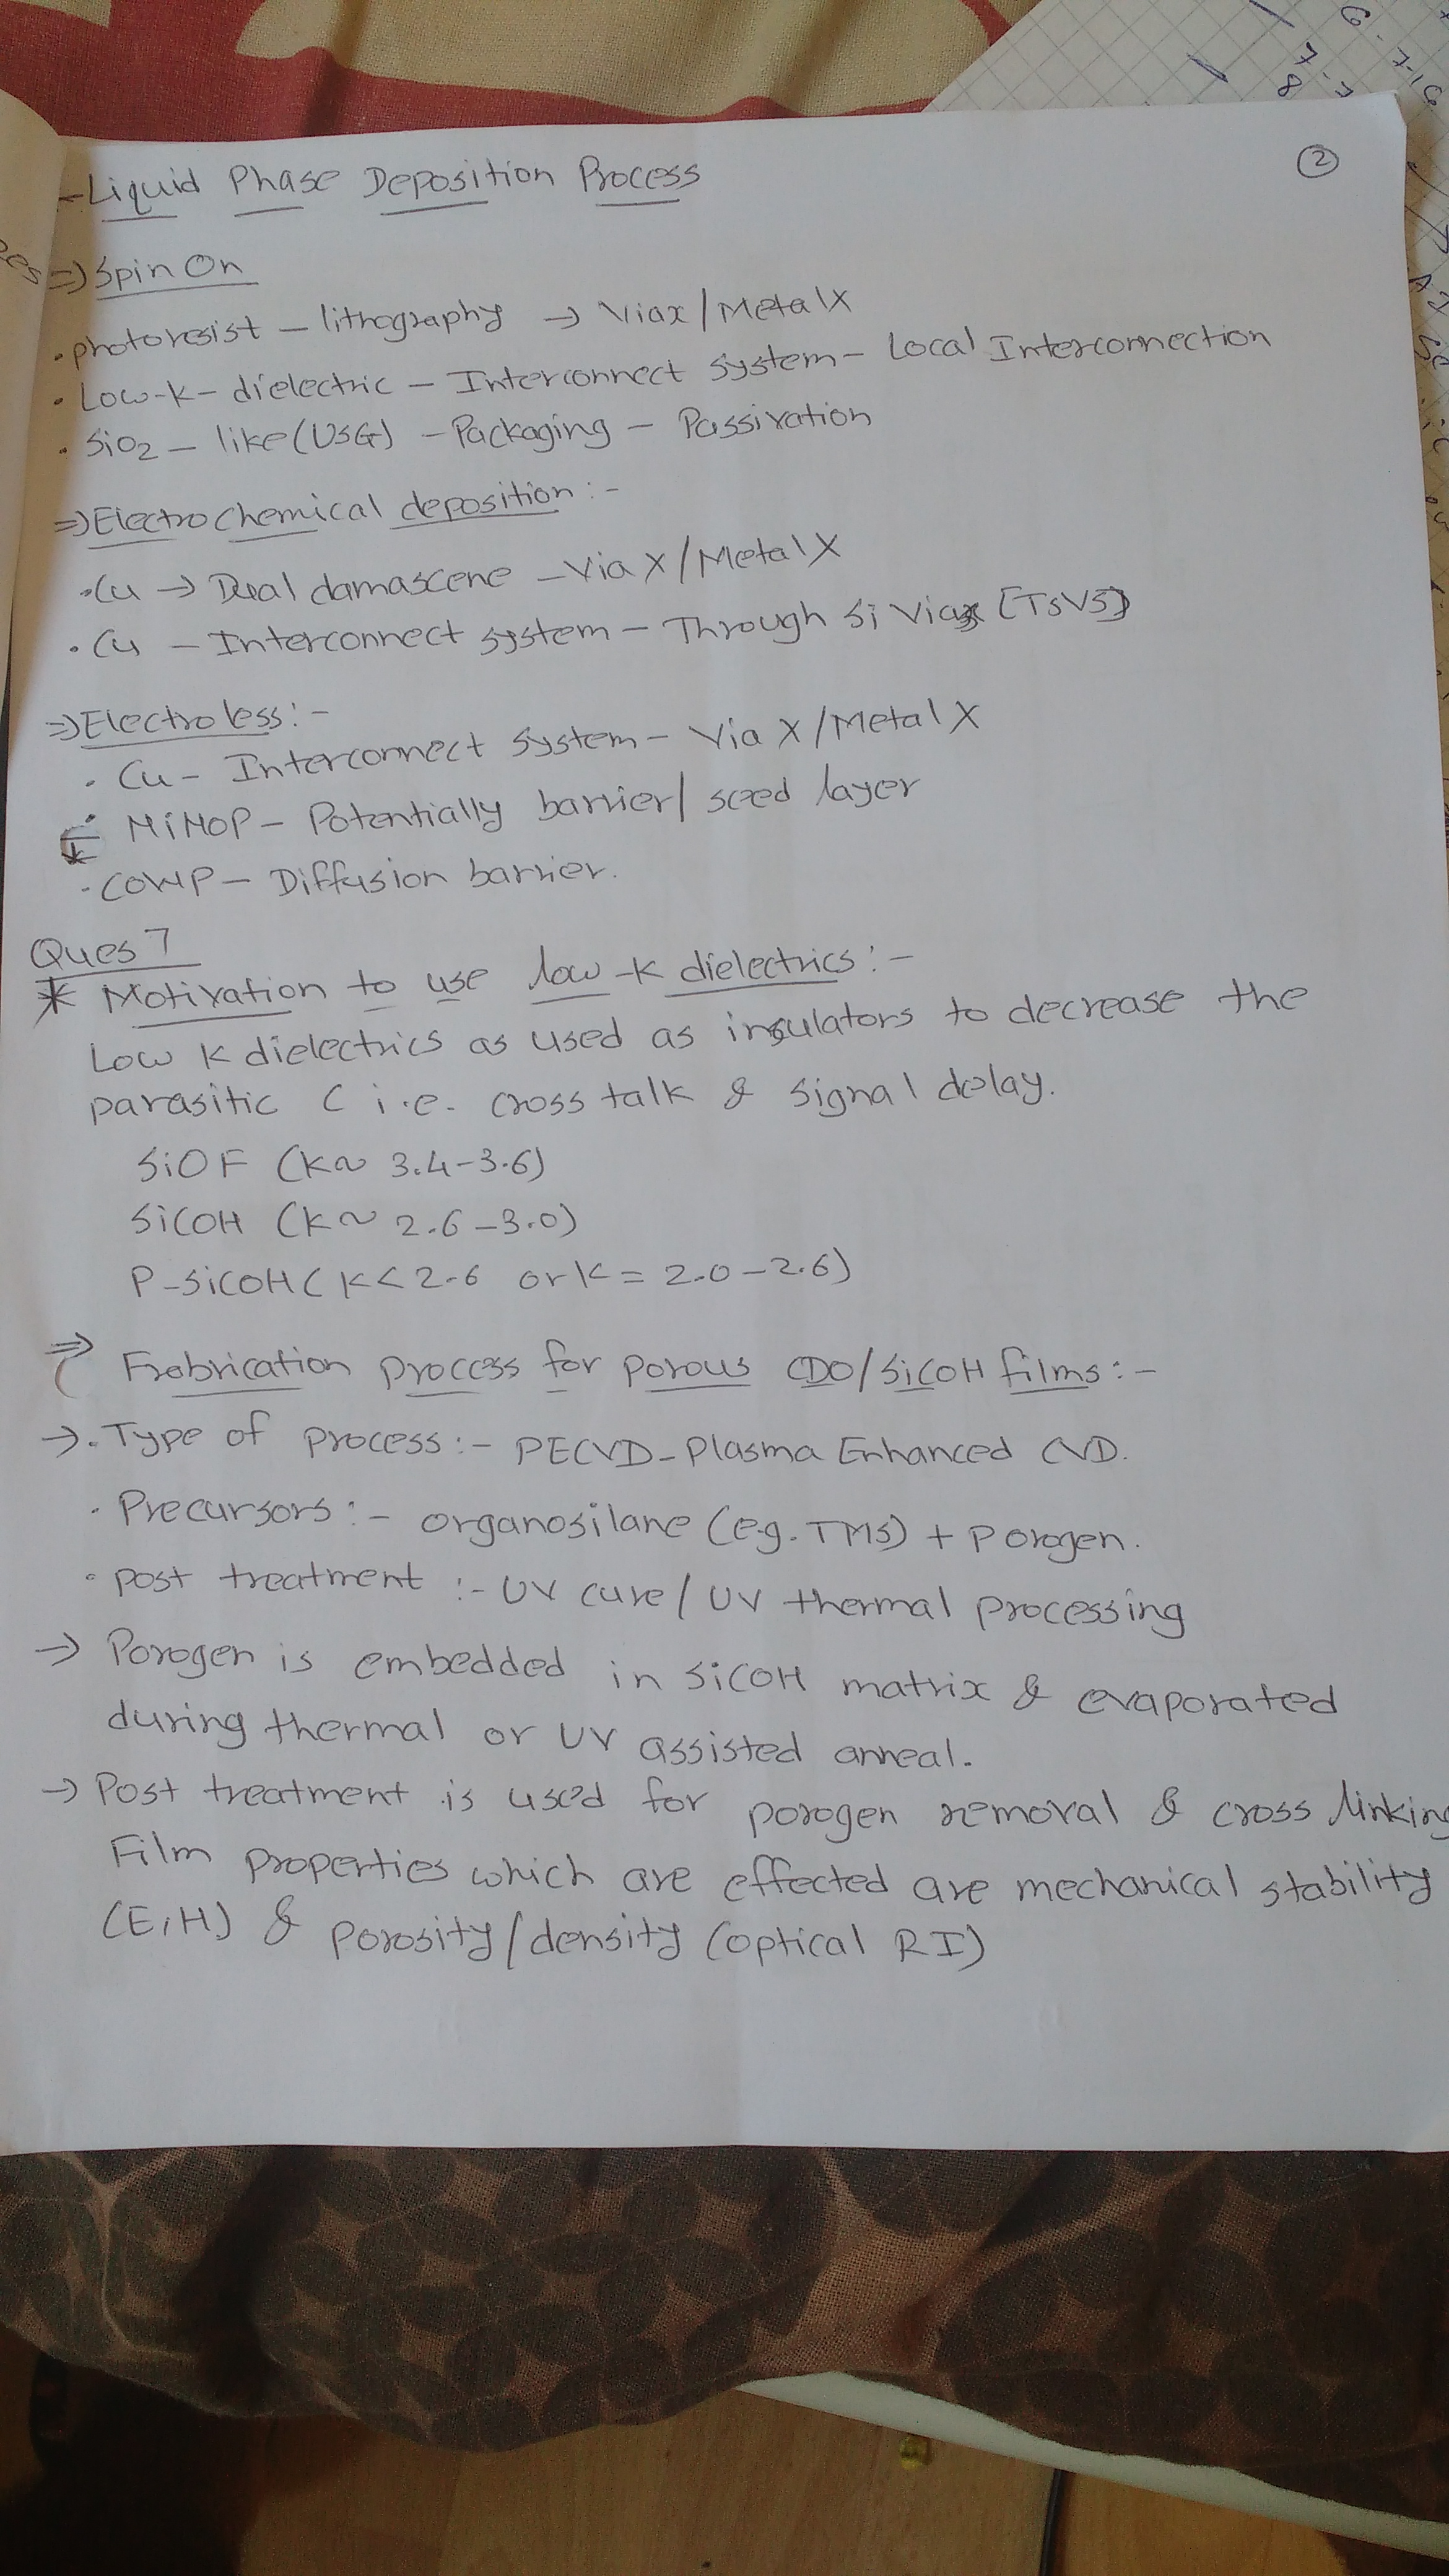 ②
- Liquid Phase Deposition Process
=> Spin On
. photoresist - lithography -> Viax/MetalX
. Low-k-dielectric - Interconnect system - Local Interconnection
. SiO2 - like (USG) - Packaging - Passivation
=> Electrochemical deposition :-
. Cu -> Dual damascene - Via X/Metal X
. Cu - Interconnect system - Through Si Vias [TSVS]
=> Electroless :-
. Cu - Interconnect system - Via X/Metal X
. NiMOP - Potentially barrier/ seed layer
. COWP - Diffusion barrier.
Ques 7
* Motivation to use low-k dielectrics :-
Low K dielectrics as used as insulators to decrease the
parasitic C i.e. cross talk & signal delay.
SiOF (K~ 3.4-3.6)
SiCOH (K~ 2.6-3.0)
P-SiCOH ( K<2.6 or K = 2.0-2.6)
=> Fabrication process for porous CDO/SiCOH films :-
->. Type of process :- PECVD - Plasma Enhanced CVD.
. Precursors :- organosilane (e.g. TMS) + Porogen.
. post treatment :- UV cure / UV thermal processing
-> Porogen is embedded in SiCOH matrix & evaporated
during thermal or UV assisted anneal.
-> Post treatment is used for porogen removal & cross linking
Film properties which are effected are mechanical stability
(E,H) & porosity/density (optical RI)